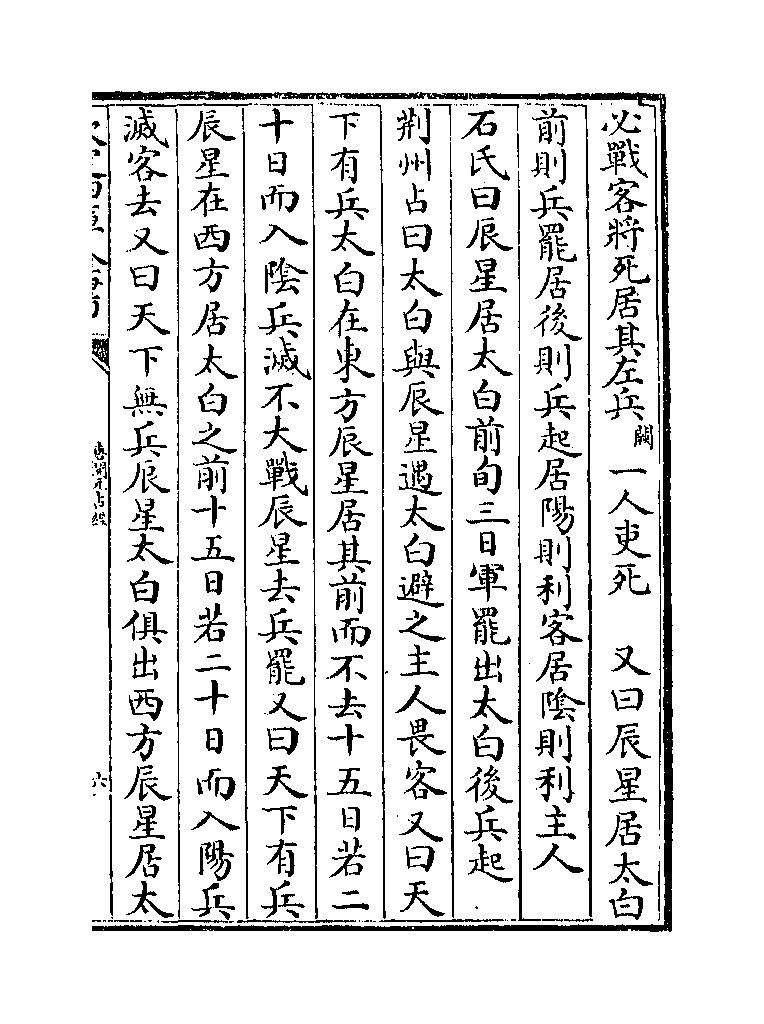 必戰客將死居其左兵闕一人吏死　又曰辰星居太白
前則兵罷居後則兵起居陽則利客居陰則利主人
石氏曰辰星居太白前旬三日軍罷出太白後兵起
荆州占曰太白與辰星遇太白避之主人畏客又曰天
下有兵太白在東方辰星居其前而不去十五日若二
十日而入陰兵滅不大戰辰星去兵罷又曰天下有兵
辰星在西方居太白之前十五日若二十日而入陽兵
滅客去又曰天下無兵辰星太白俱出西方辰星居太
唐開元占經
六